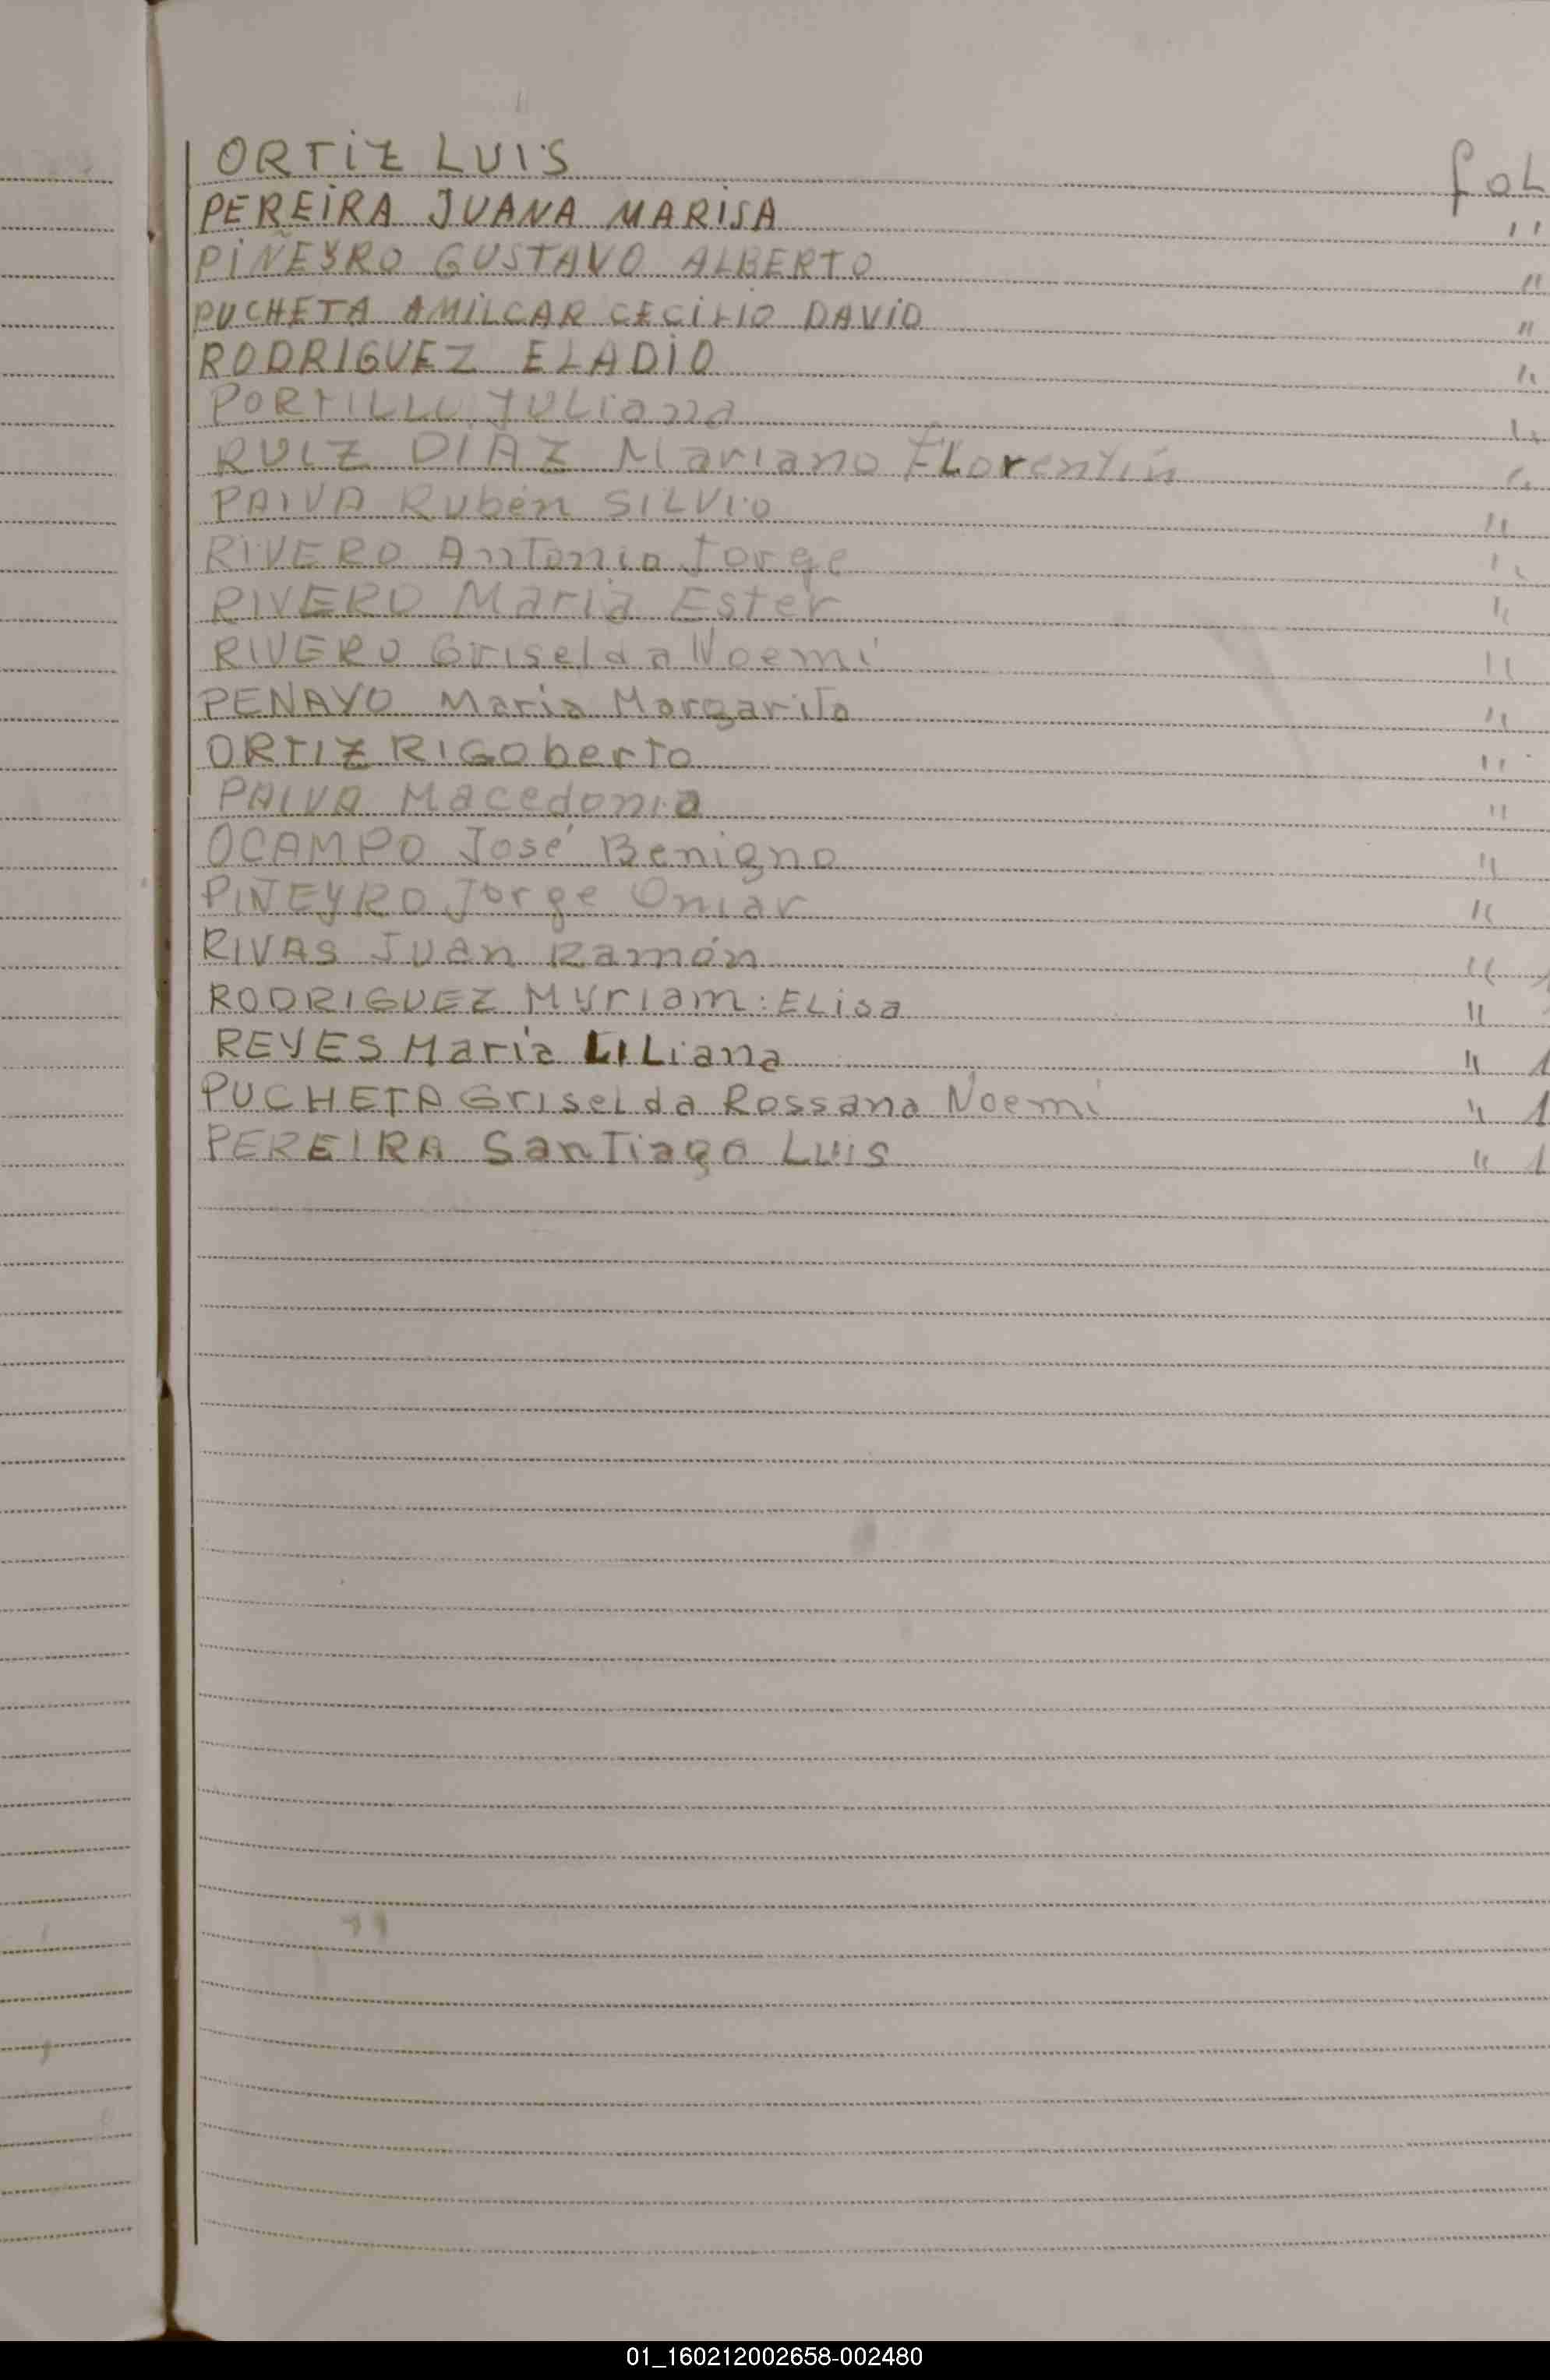 ORTIZ LUIS foL
PEREIRA JUANA MARISA "
PIÑEYRO GUSTAVO ALBERTO "
PUCHETA AMILCAR CECILIO DAVID "
RODRIGUEZ ELADIO "
PORTILLO JULiana "
RUIZ DIAZ Mariano FLorentín "
PAIVA Rubén SILVIO "
RIVERO Antonio Jorge "
RIVERO María Ester "
RIVERO Griselda Noemí "
PENAYO María Margarita "
ORTIZ RIGOberto "
PAIVA Macedonia "
OCAMPO José Benigno "
PIÑEYRO Jorge Omar "
RIVAS Juan Ramón "
RODRIGUEZ Myriam ELisa "
REYES María LILiana " 1
PUCHETA GriseLda Rossana Noemí " 1
PEREIRA Santiago Luis " 1
01_160212002658-002480